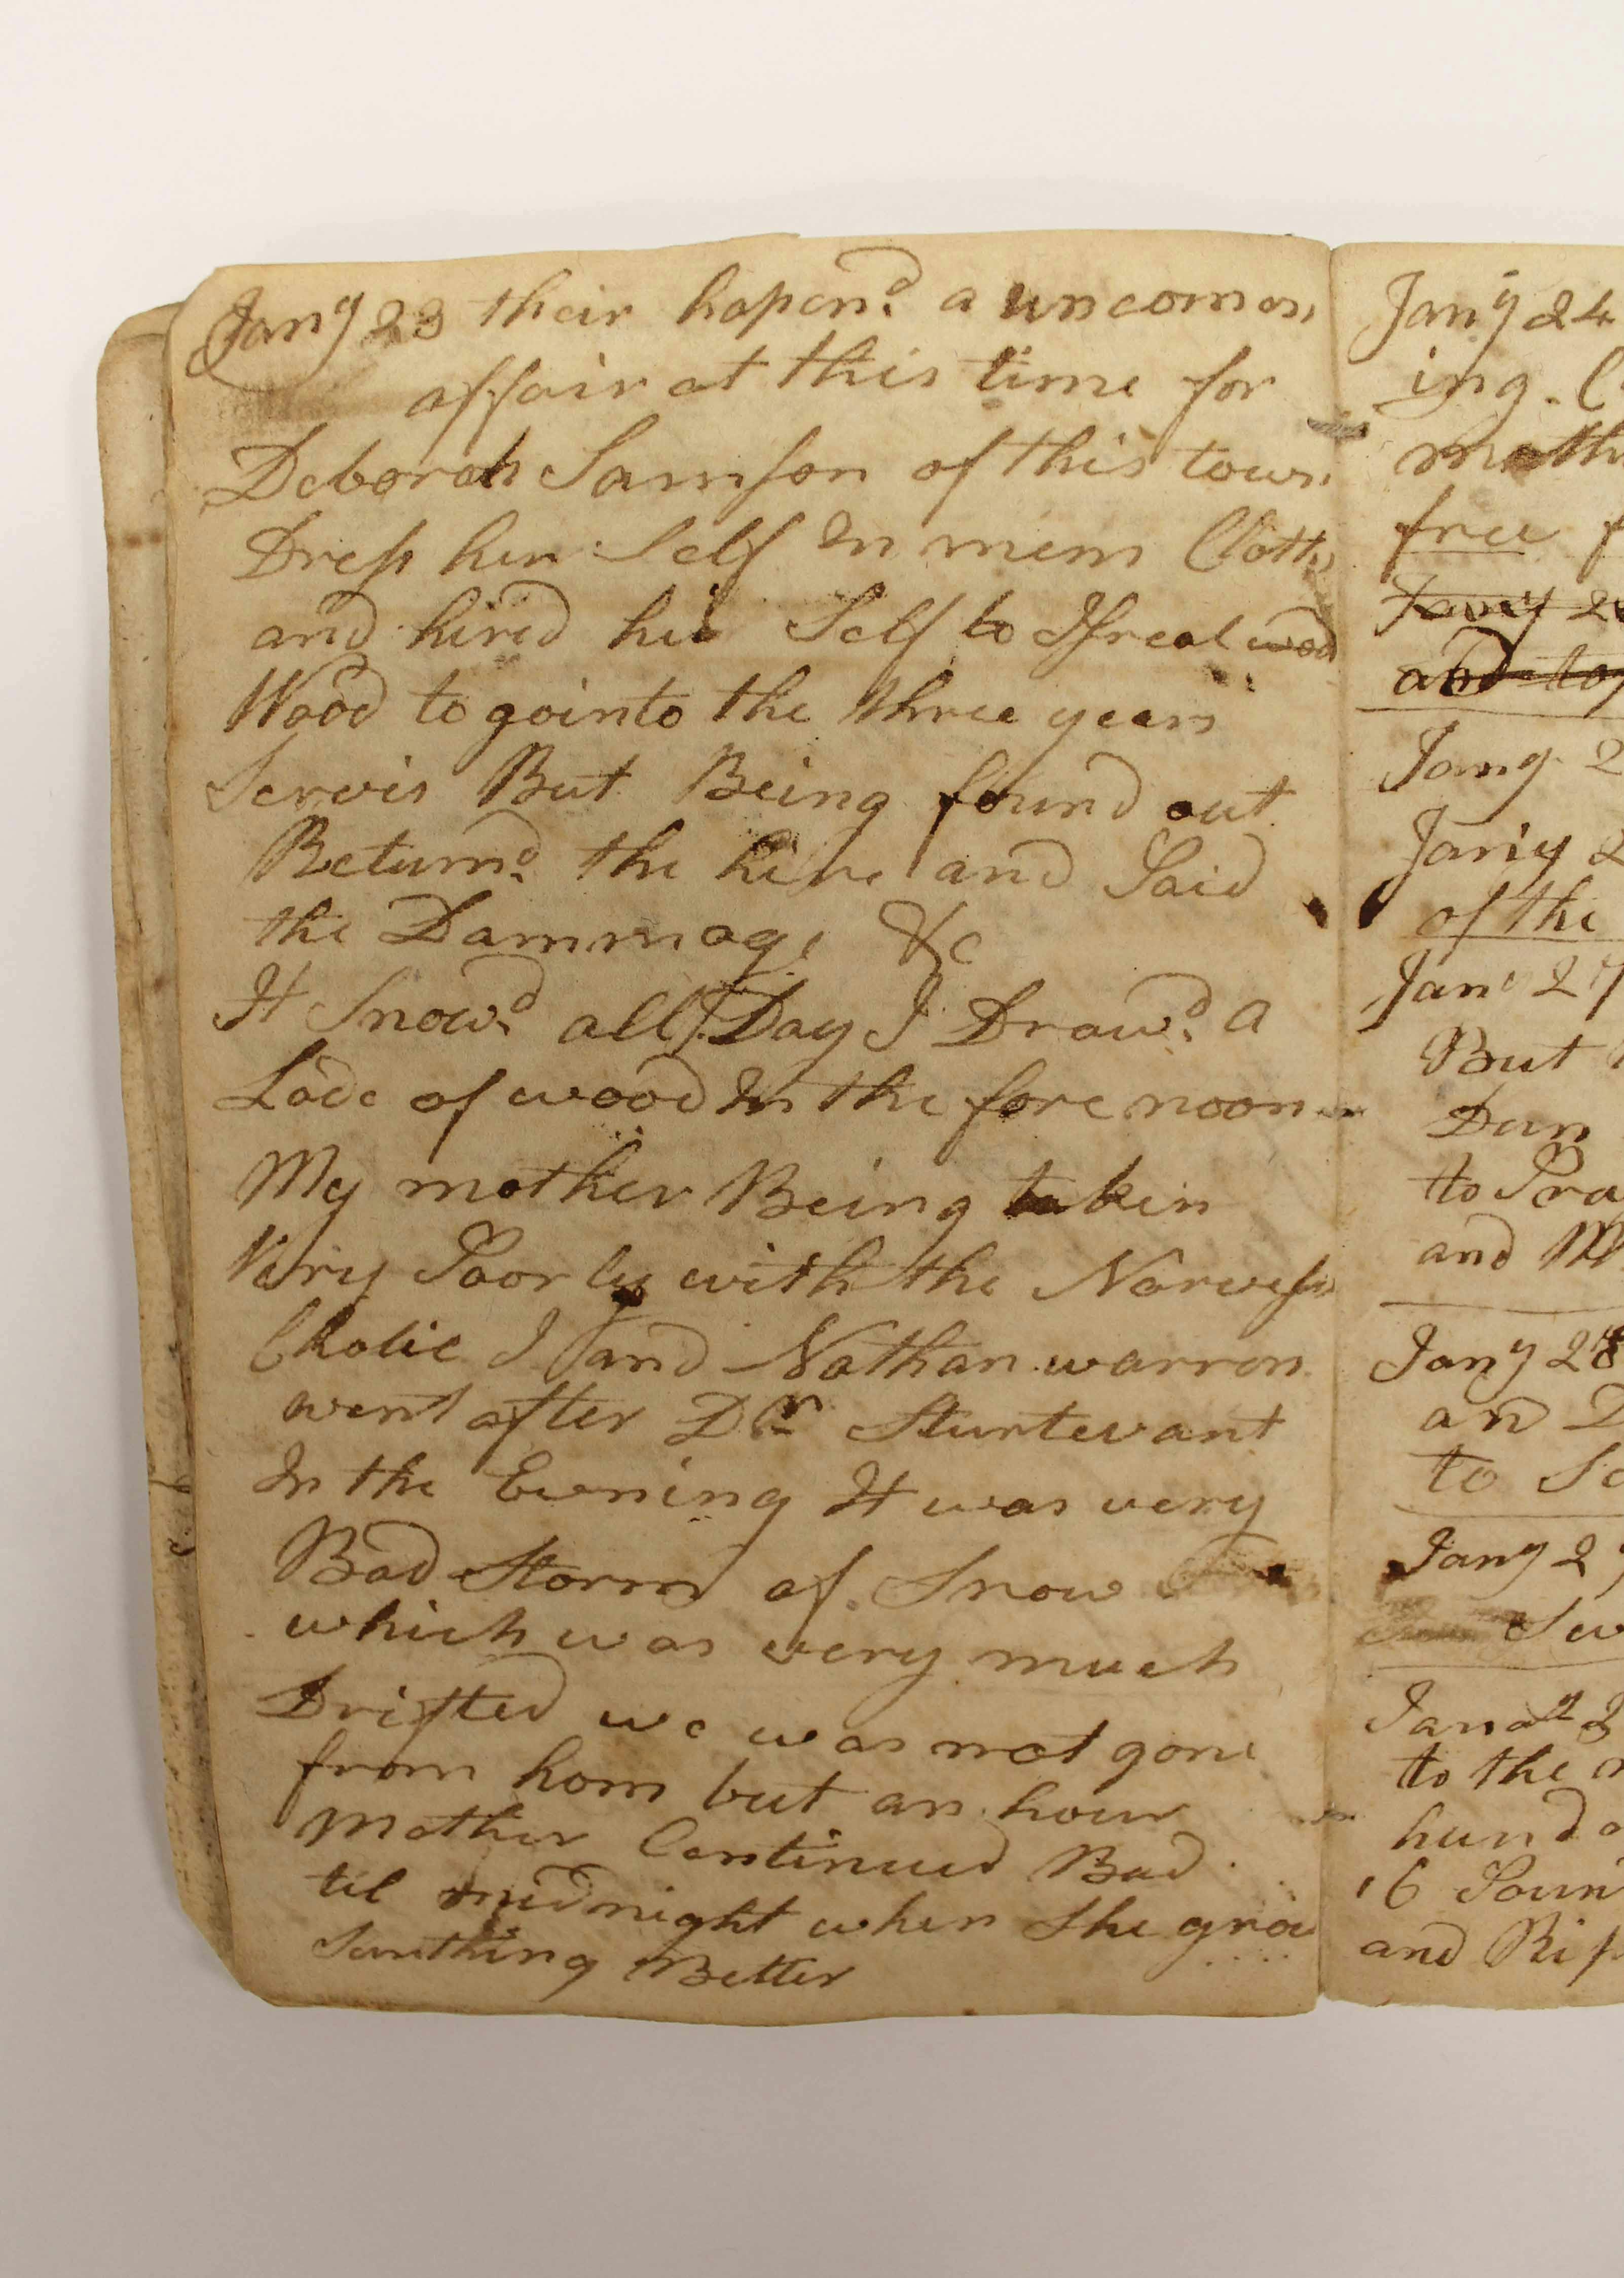 Jany 23 their hapend a uncomon
affair at this time for
Deborah Samson of this town
Dress her Self In mens Cloths
and hired his Self to Isreal wood
Wood to go into the three years
Servis But Being found out
Returnd the hire and Paid
the Dammage &c
It Snowd all Day I Drawd a
Lode of wood In the fore noon
My mother Being taken
Very Poorly with the Nerves
Cholic I and Nathan warren
went after Dr Sturtevant
In the Evening It was very
Bad Storm of Snow
which was very much
Drifted we was not gone
from hom but an hour
Mother Continued Bad
til midnight when She grow
Sumthing Better
Jany 24
ing.
moth
free f
Jany
and to
Jany 2
Jany 2
of the
Jany 27
But
Dun
to Pra
and
Jany 28
an D
to Sc
Jany 29
Sw
Jany
to the
hund
16 Poun
and Rip